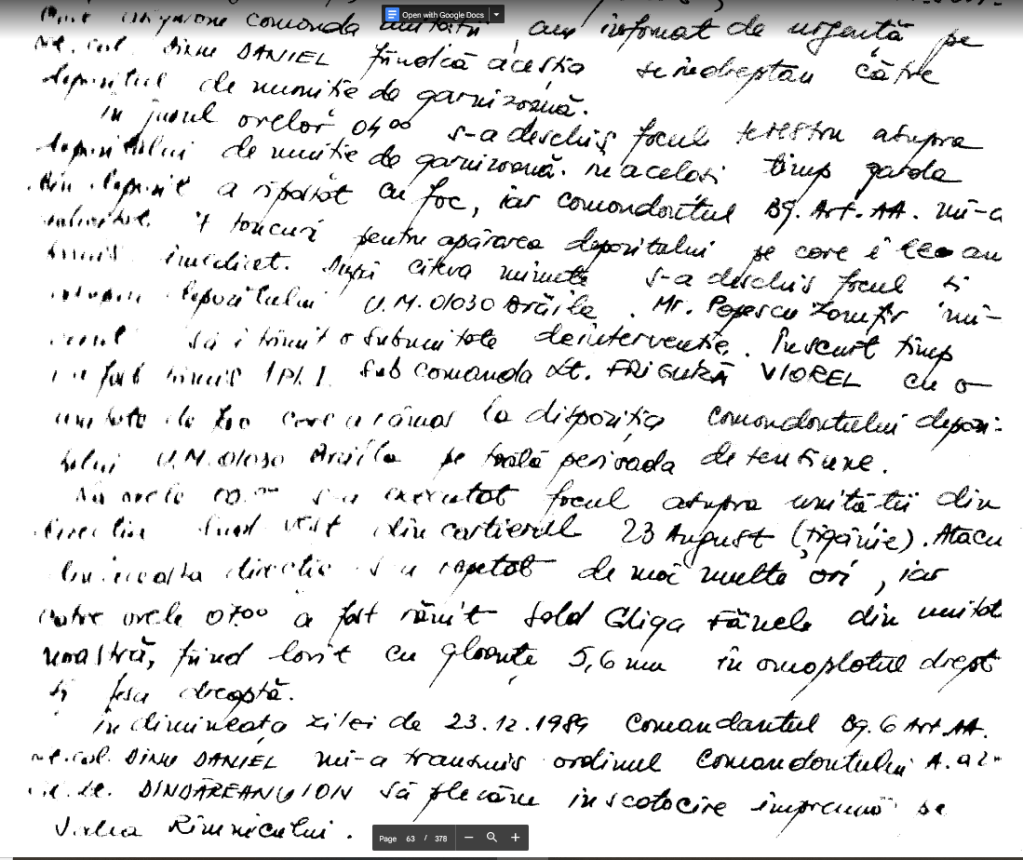 Open with Google Docs
comanda unității, am informat de urgență pe
lt. col. DINU DANIEL fiindcă aceștia se îndreptau către
depozitul de muniție de garnizoană.
În jurul orelor 04⁰⁰ s-a deschis focul terestru asupra
depozitului de muniție de garnizoană. În același timp garda
din depozit a ripostat cu foc, iar comandantul Bg. Art. AA. mi-a
solicitat 4 tancuri pentru apărarea depozitului pe care i le-am
trimis imediat. După cîteva minute s-a deschis focul și
asupra depozitului U.M. 01030 Brăila. Mr. Popescu Zamfir mi-
să-i trimit o subunitate de intervenție. În scurt timp
a fost trimis 1 Pl. I. sub comanda Lt. FRIGURĂ VIOREL cu o
care a rămas la dispoziția comandantului depozi-
tului U.M. 01030 Brăila pe toată perioada de tensiune.
s-a executat focul asupra unității din
direcția sud vest din cartierul 23 August (țigănie). Atacu
din această direcție s-a repetat de mai multe ori, iar
către orele 07⁰⁰ a fost rănit sold Gliga Fănele din unitat
noastră, fiind lovit cu gloanțe 5,6 mm în omoplatul drept
și fesa dreaptă.
În dimineața zilei de 23.12.1989 comandantul Bg. 6 Art. AA.
lt. col. DINU DANIEL mi-a transmis ordinul comandantului
DINDĂREANU ION să plecăm în scotocire împreună pe
Valea Rîmnicului.
Page 63 / 378